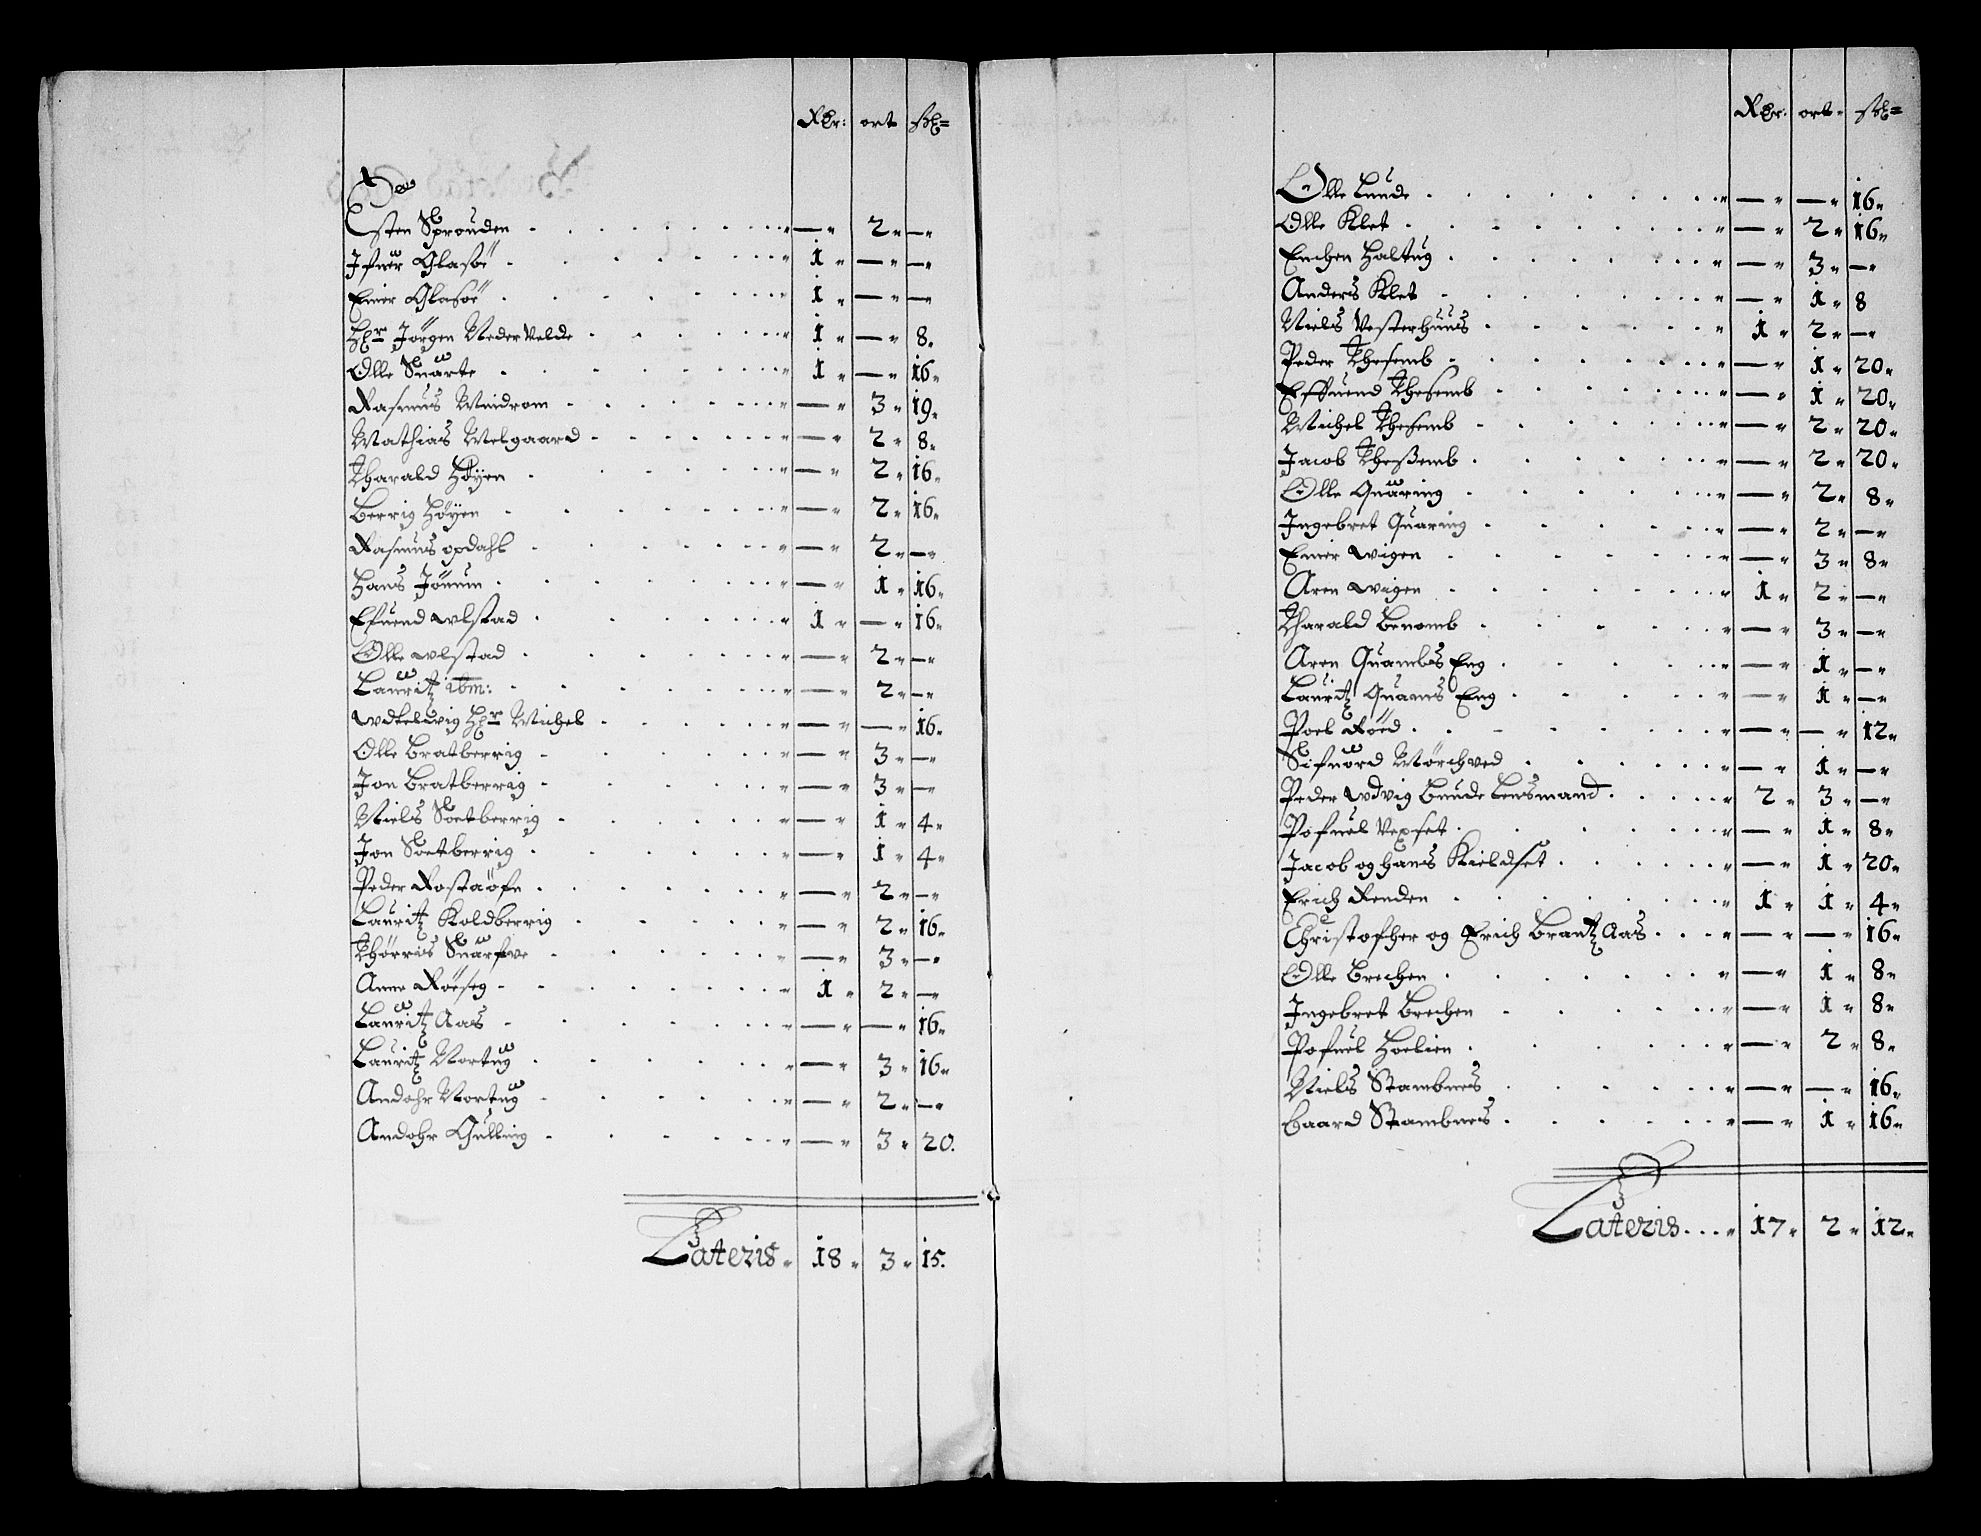 Rdr: ort sk=
Esten Sprouden . . . . . . . „ — „ 2 „ — „
Ifuer Glasöe . . . . . . . „ 1 „ — „ — „
Emer Glasöe . . . . . . . „ 1 „ — „ — „
Hr Jörgen Nedervelde . . . . . „ 1 „ — „ 8.
Olle Suarte . . . . . . . „ 1 „ — „ 16„
Rasmus Midrom . . . . . . „ — „ 3 „ 19„
Mathias Melgaard . . . . . „ — „ 2 „ 8„
Tharald Høyen . . . . . . „ — „ 2 „ 16„
Berrig Høyen . . . . . . „ — „ 2 „ 16„
Rasmus opdahl . . . . . . „ — „ 2 „ — „
Hans Jönum . . . . . . „ — „ 1 „ 16„
Efuend Ulstad . . . . . . „ 1 „ — „ 16„
Olle Ulstad . . . . . . „ — „ 2 „ — „
Lauritz ibm: . . . . . . „ — „ 2 „ — „
Hr Michel . . . . „ — „ — „ 16„
Olle Bratberrig . . . . . „ — „ 3 „ — „
Jon Bratberrig . . . . . „ — „ 3 „ — „
Niels Soetberrig . . . . . „ — „ 1 „ 4„
Jon Soetberrig . . . . . „ — „ 1 „ 4„
Peder Rostaöfn . . . . . „ — „ 2 „ — „
Lauritz Koldberrig . . . . . „ — „ 2 „ 16„
Thørris Suarfve . . . . . „ — „ 3 „ — „
Anne Röeseg . . . . . . „ 1 „ 2 „ — „
Lauritz Aas . . . . . . „ — „ — „ 16„
Lauritz Nortug . . . . . „ — „ 3 „ 16„
Andohr Nortug . . . . . „ — „ 2 „ — „
Andohr Gulling . . . . . „ — „ 3 „ 20.
Lateris „ 18 „ 3 „ 15.
Rdr: ort sk=
Olle Lunde . . . . . . „ — „ — „ 16„
Olle Klet . . . . . . „ — „ 2 „ 16„
Enchen Haltug . . . . . „ — „ 3 „ — „
Anders Klet . . . . . . „ — „ 1 „ 8
Niels Vesterhuus . . . . . „ 1 „ 2 „ — „
Peder Thesemb . . . . . „ — „ 1 „ 20„
Effuend Thesemb . . . . . „ — „ 1 „ 20„
Michel Thesemb . . . . . „ — „ 2 „ 20„
Jacob Theßemb . . . . . „ — „ 2 „ 20„
Olle Quaring . . . . . „ — „ 2 „ 8„
Ingebret Quaring . . . . . „ — „ 2 „ — „
Emer Wigen . . . . . „ — „ 3 „ 8„
Aren Wigen . . . . . „ 1 „ 2 „ — „
Tharald Benomb . . . . . „ — „ 3 „ — „
Aren Quambs Eng . . . . „ — „ 1 „ — „
Lauritz Quams Eng . . . . „ — „ 1 „ — „
Poel Röed . . . . . . „ — „ — „ 12„
Sifuord Mörchved . . . . . „ — „ 1 „ — „
Peder Udvig Lunde Lensmand . . . „ 2 „ 3 „ — „
Pofuel Vexset . . . . . „ — „ 1 „ 8„
Jacob og Hans Kieldset . . . . „ — „ 1 „ 20„
Erich Renden . . . . . „ 1 „ 1 „ 4„
Christopher og Erich Brantz Aas . . . „ — „ — „ 16„
Olle Brechen . . . . . „ — „ 1 „ 8„
Ingebret Brechen . . . . . „ — „ 1 „ 8„
Pofuel Hoelien . . . . . „ — „ 2 „ 8„
Niels Stambnes . . . . . „ — „ — „ 16„
Baard Stambnes . . . . . „ — „ 1 „ 16„
Lateris . . . „ 17 „ 2 „ 12„